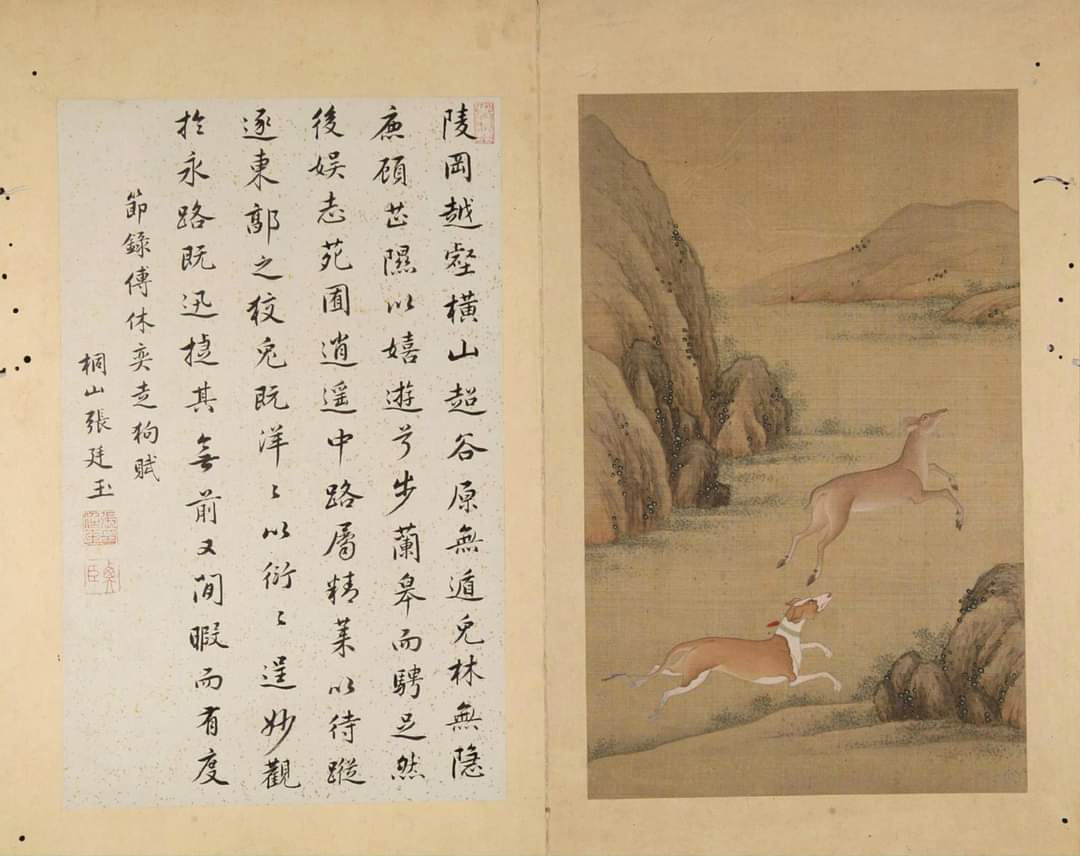 陵岡越壑橫山超谷原無遁兔林無隱
鹿顧芷隰以嬉遊兮步蘭皋而騁足然
後娛志苑囿逍遙中路屬精萊以待蹤
逐東郭之狡兔既洋〻以衍〻逞妙觀
於永路既迅捷其無前又閒暇而有度
節錄傅休奕走狗賦
桐山張廷玉